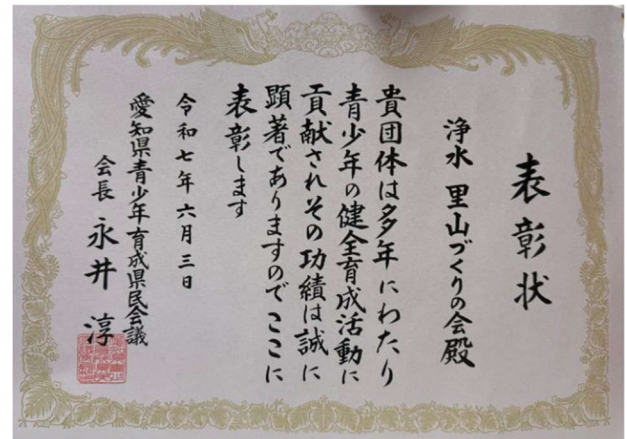 表彰状
浄水 里山づくりの会殿
貴団体は多年にわたり
青少年の健全育成活動に
貢献されその功績は誠に
顕著でありますのでここに
表彰します
令和七年六月三日
愛知県青少年育成県民会議
会長 永井 淳